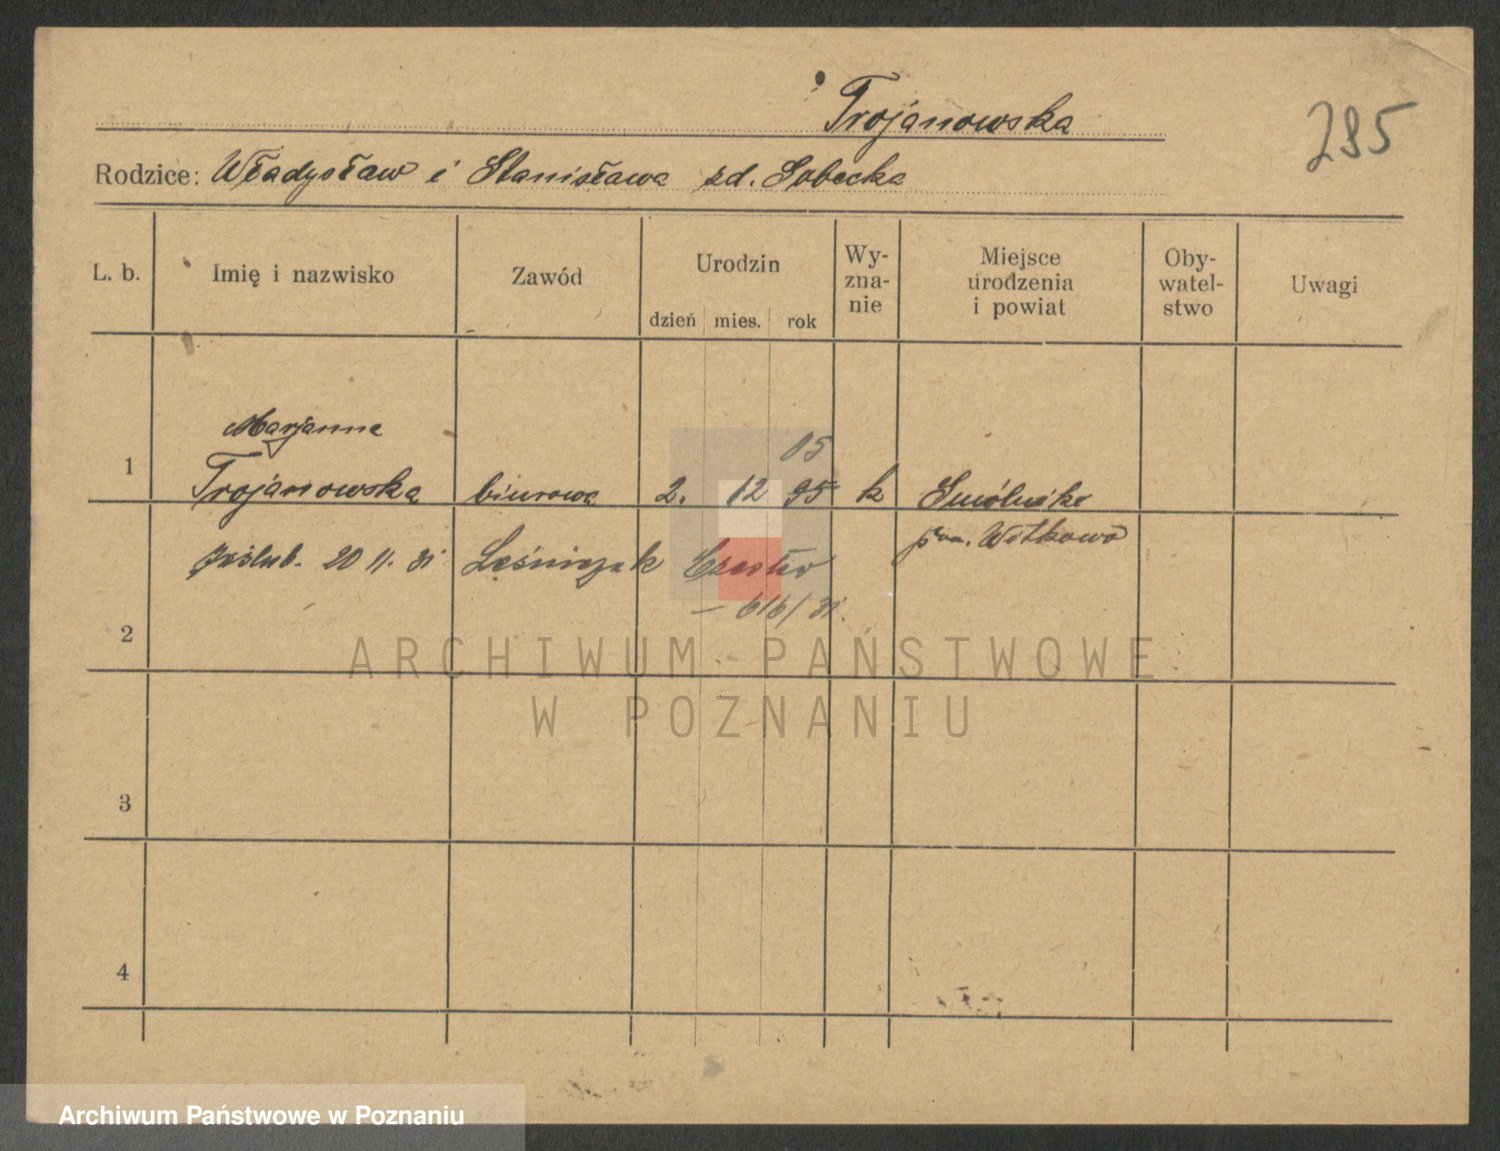 Trojanowska
285
Rodzice: Władysław i Stanisława zd. Sobecka
L. b.
Imię i nazwisko
Zawód
Urodzin
dzień mies. rok
Wy-
zna-
nie
Miejsce
urodzenia
i powiat
Oby-
watel-
stwo
Uwagi
Marjanna
05
1 Trojanowska biurowa 2. 12 95 k Smólniki
pow. Witkowo
poślub. 20 11. 31 Leśniczak Czesław
616/31.
2
ARCHIWUM PAŃSTWOWE
W POZNANIU
3
4
Archiwum Państwowe w Poznaniu